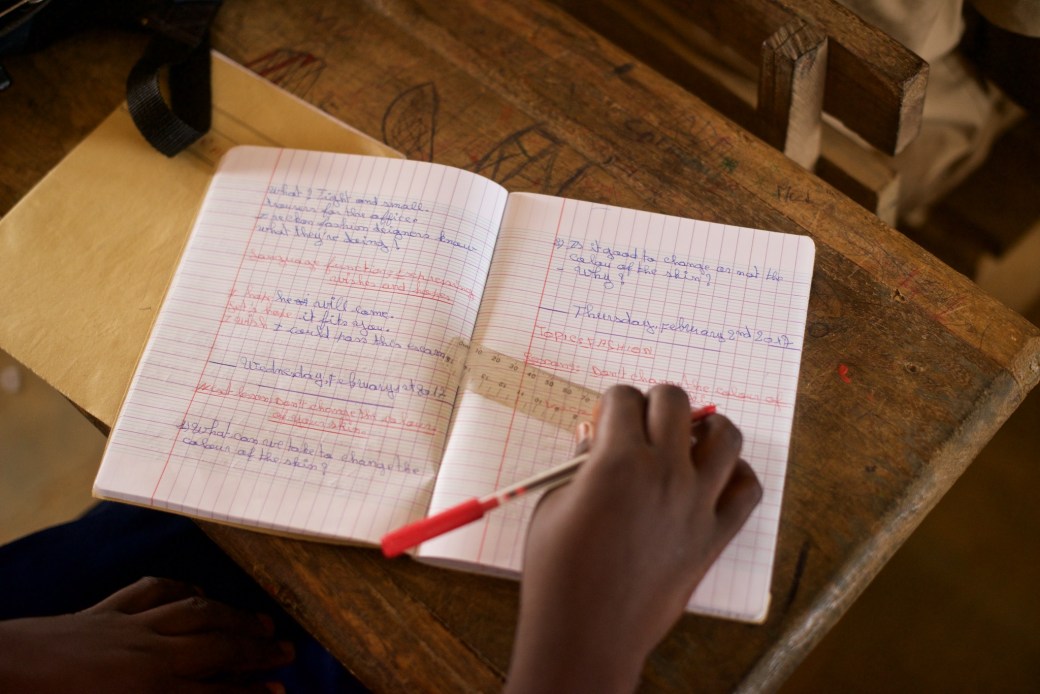 what? Tight and small
trousers for the office.
fashion designers know
what they're doing!
Language function: Expressing
wishes and
he will come.
it fits you.
I could pass this exam.
Wednesday, February, 1st 2017
Don't change the colour
skin
What can we take to change the
colour of the skin?
2) Is it good to change or not the
colour of the skin?
- Why?
Thursday, February 2nd 2017
Topic: FASHION
Don't change the colour of